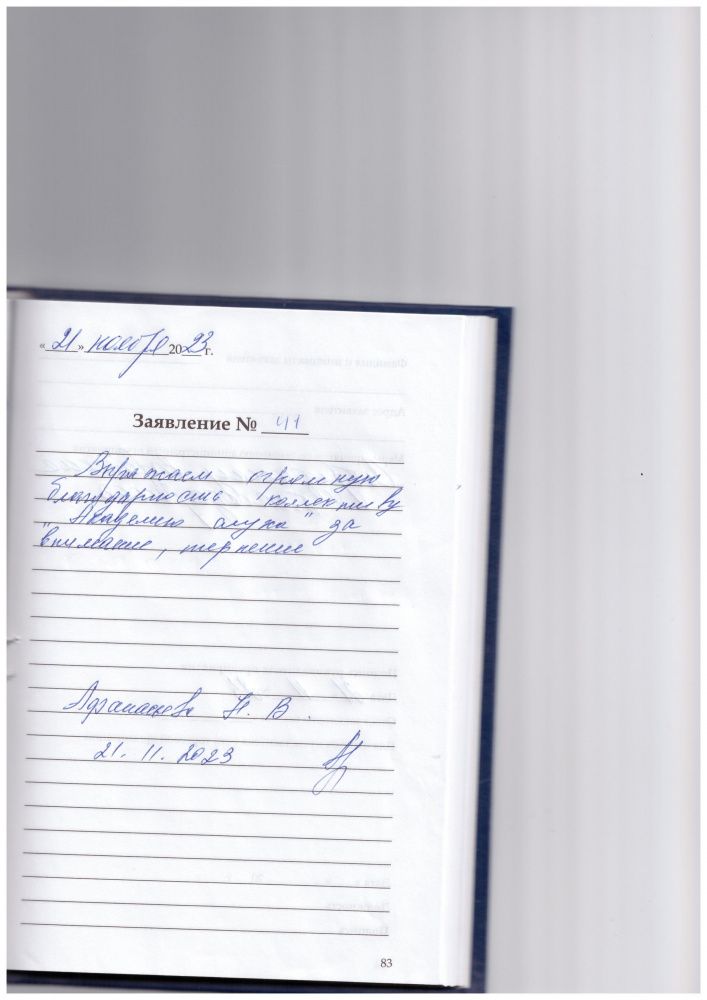 « 21 » ноября 2023 г.
Заявление № 41
Выражаем огромную
благодарность коллективу
"Академию слуха" за
внимание, терпение
Афанасьева Н. В.
21. 11. 2023
83